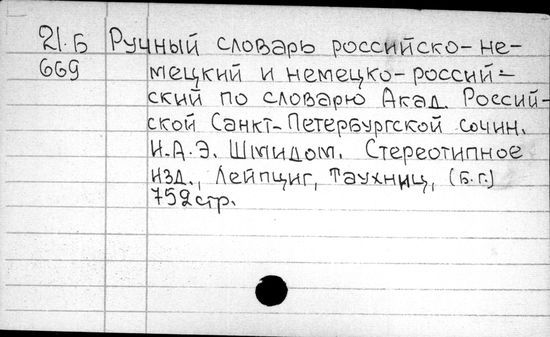 21.Б Ручный словарь российско-не-
669 мецкий и немецко-россий-
ский по словарю Акад. Россий-
ской Санкт-Петербургской сочин.
И.А.Э. Шмидом. Стереотипное
изд., Лейпциг, Таухниц, (Б.г.)
752стр.